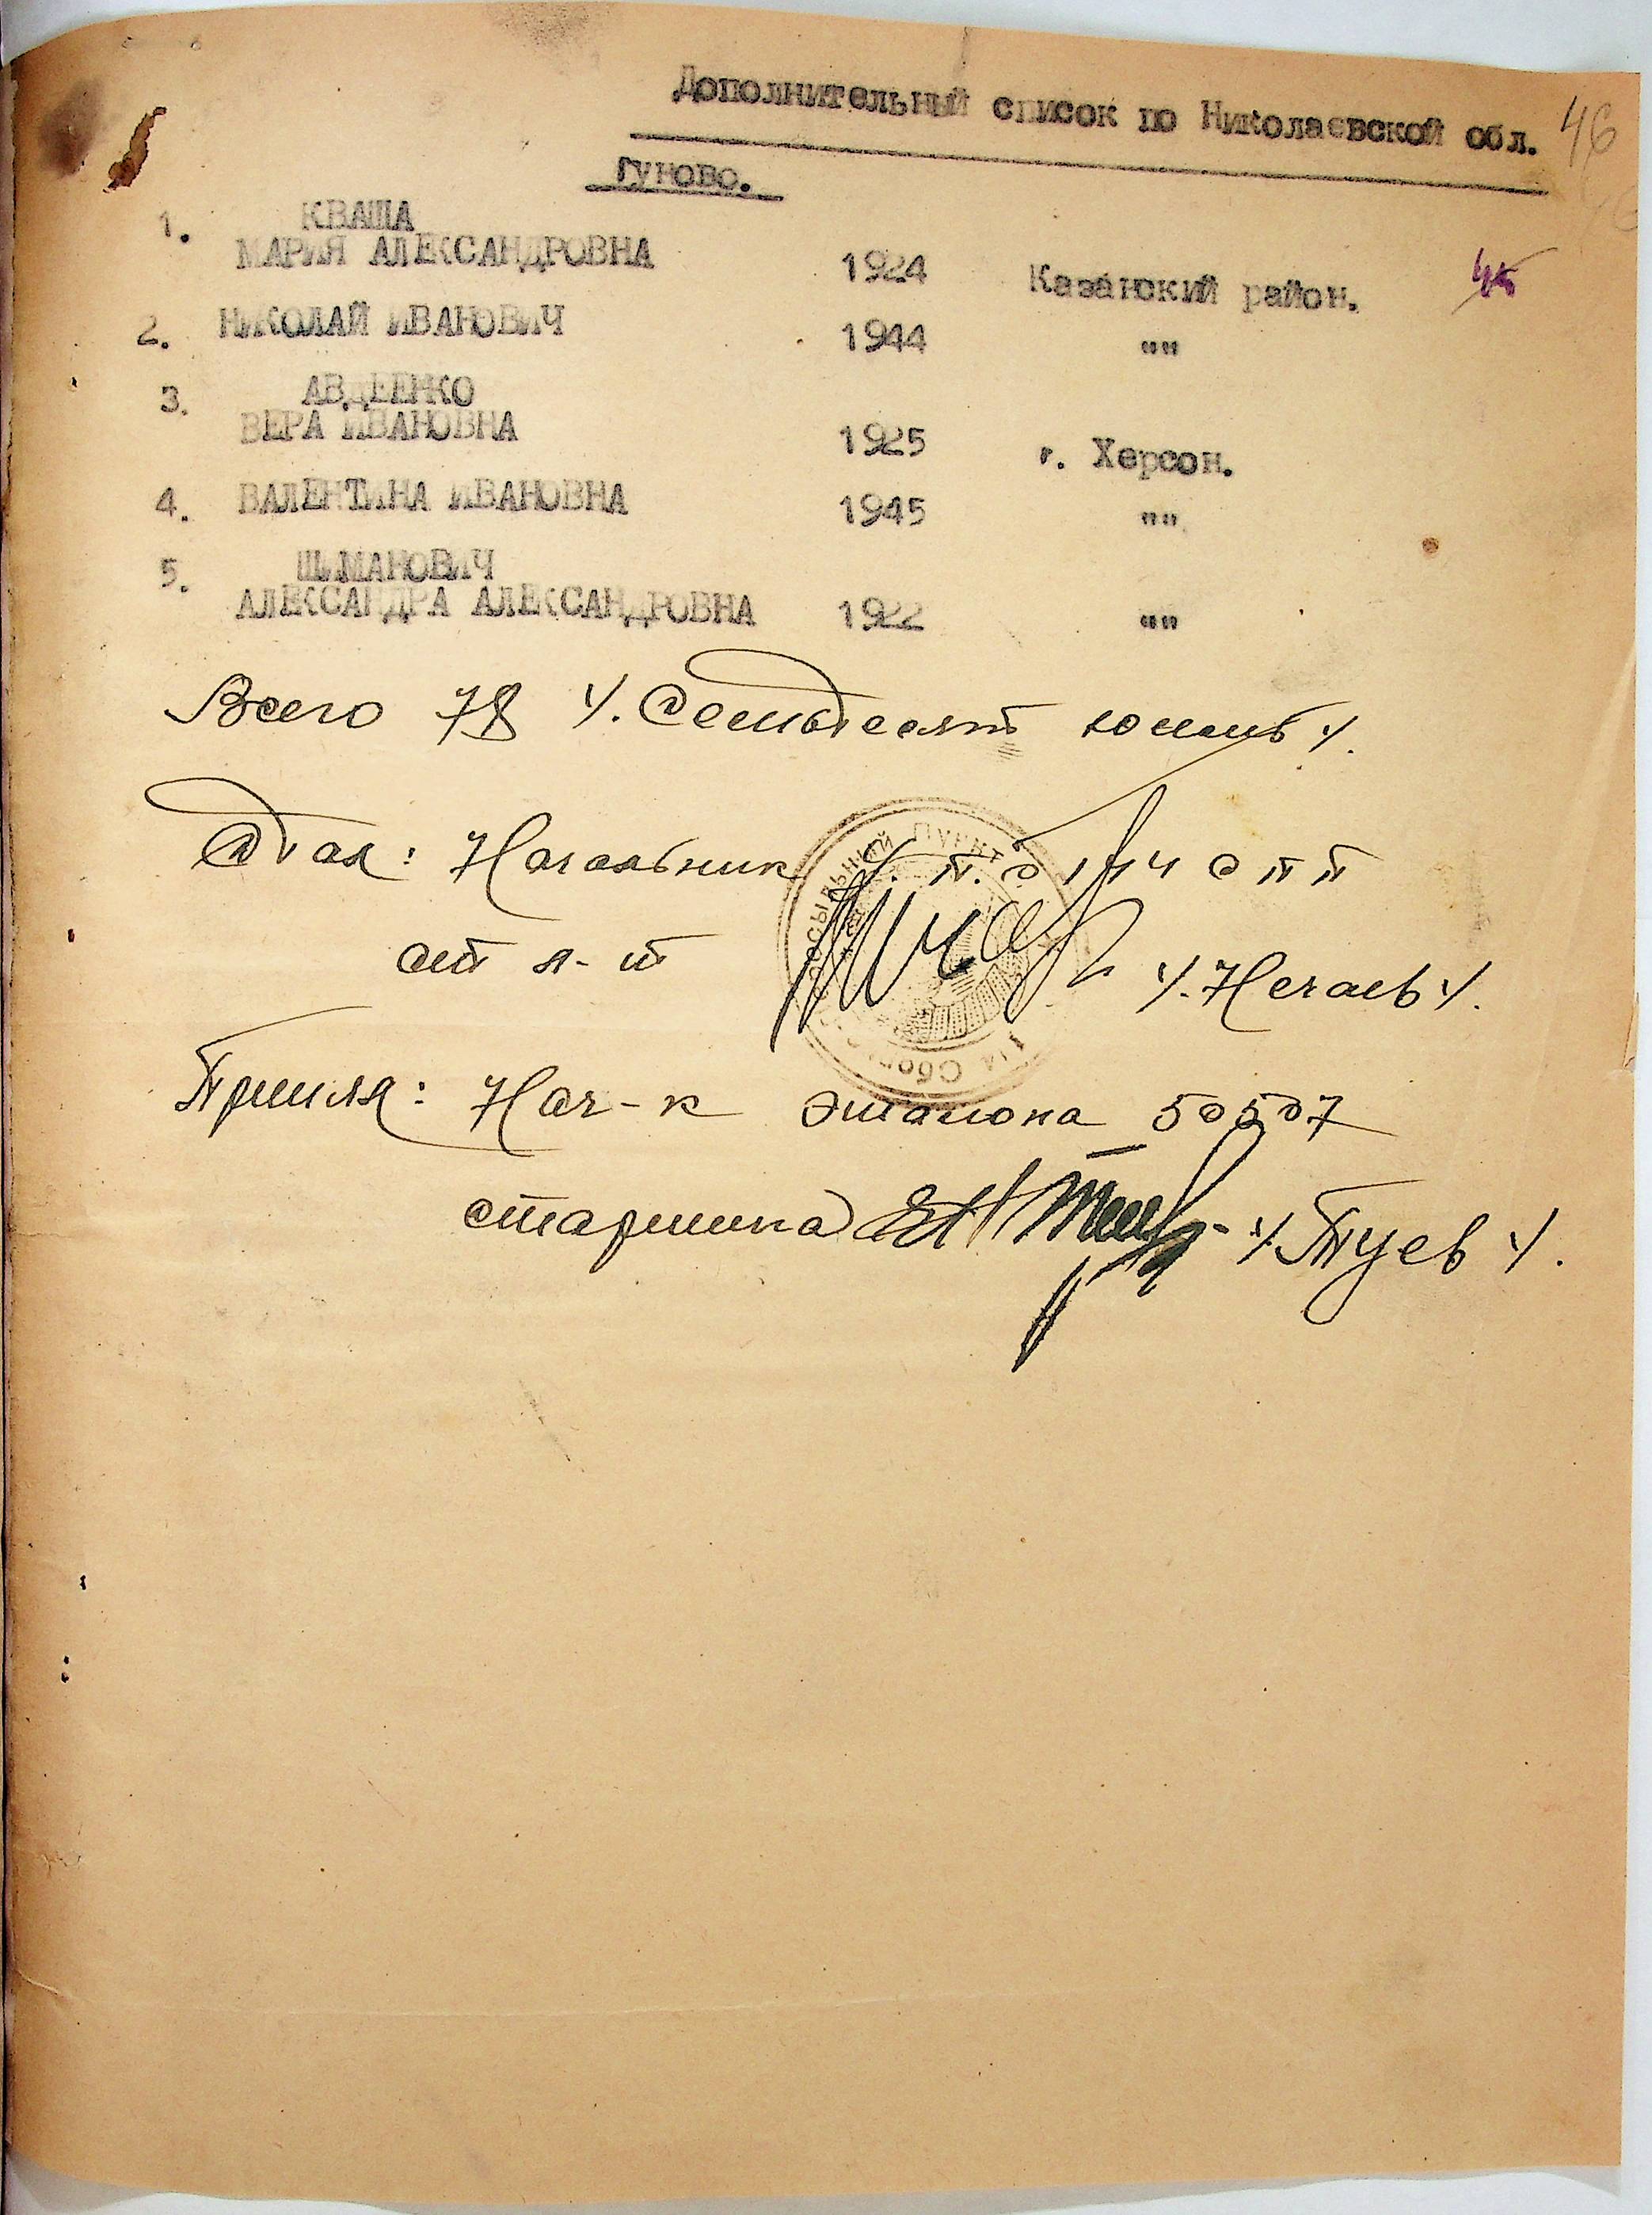 Дополнительный список по Николаевской обл.
46
Гуново.
1. КВАША
МАРИЯ АЛЕКСАНДРОВНА 1924 Казанский район.
45
2. НИКОЛАЙ ИВАНОВИЧ 1944 ""
3. АВДЕЕНКО
ВЕРА ИВАНОВНА 1925 г. Херсон.
4. ВАЛЕНТИНА ИВАНОВНА 1945 ""
5. ШИМАНОВИЧ
АЛЕКСАНДРА АЛЕКСАНДРОВНА 1922 ""
Всего 78 /. Семьдесят восемь /.
Сдал: Начальник СПП
ст л-т /. Нечаев /.
Принял: Нач-к эшалона 50507
старшина /. Туев /.